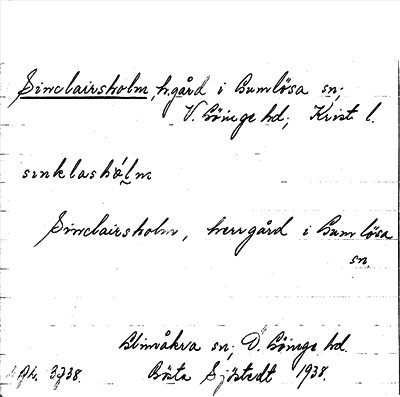 Sinclairsholm, hgård i Gumlösa sn;
V. Göinge hd; Krist l.
sınklashól̰m
Sinclairsholm, herrgård i Gumlösa
sn.
Glimåkra sn; Ö. Göinge hd.
3738. Gösta Sjöstedt 1938.